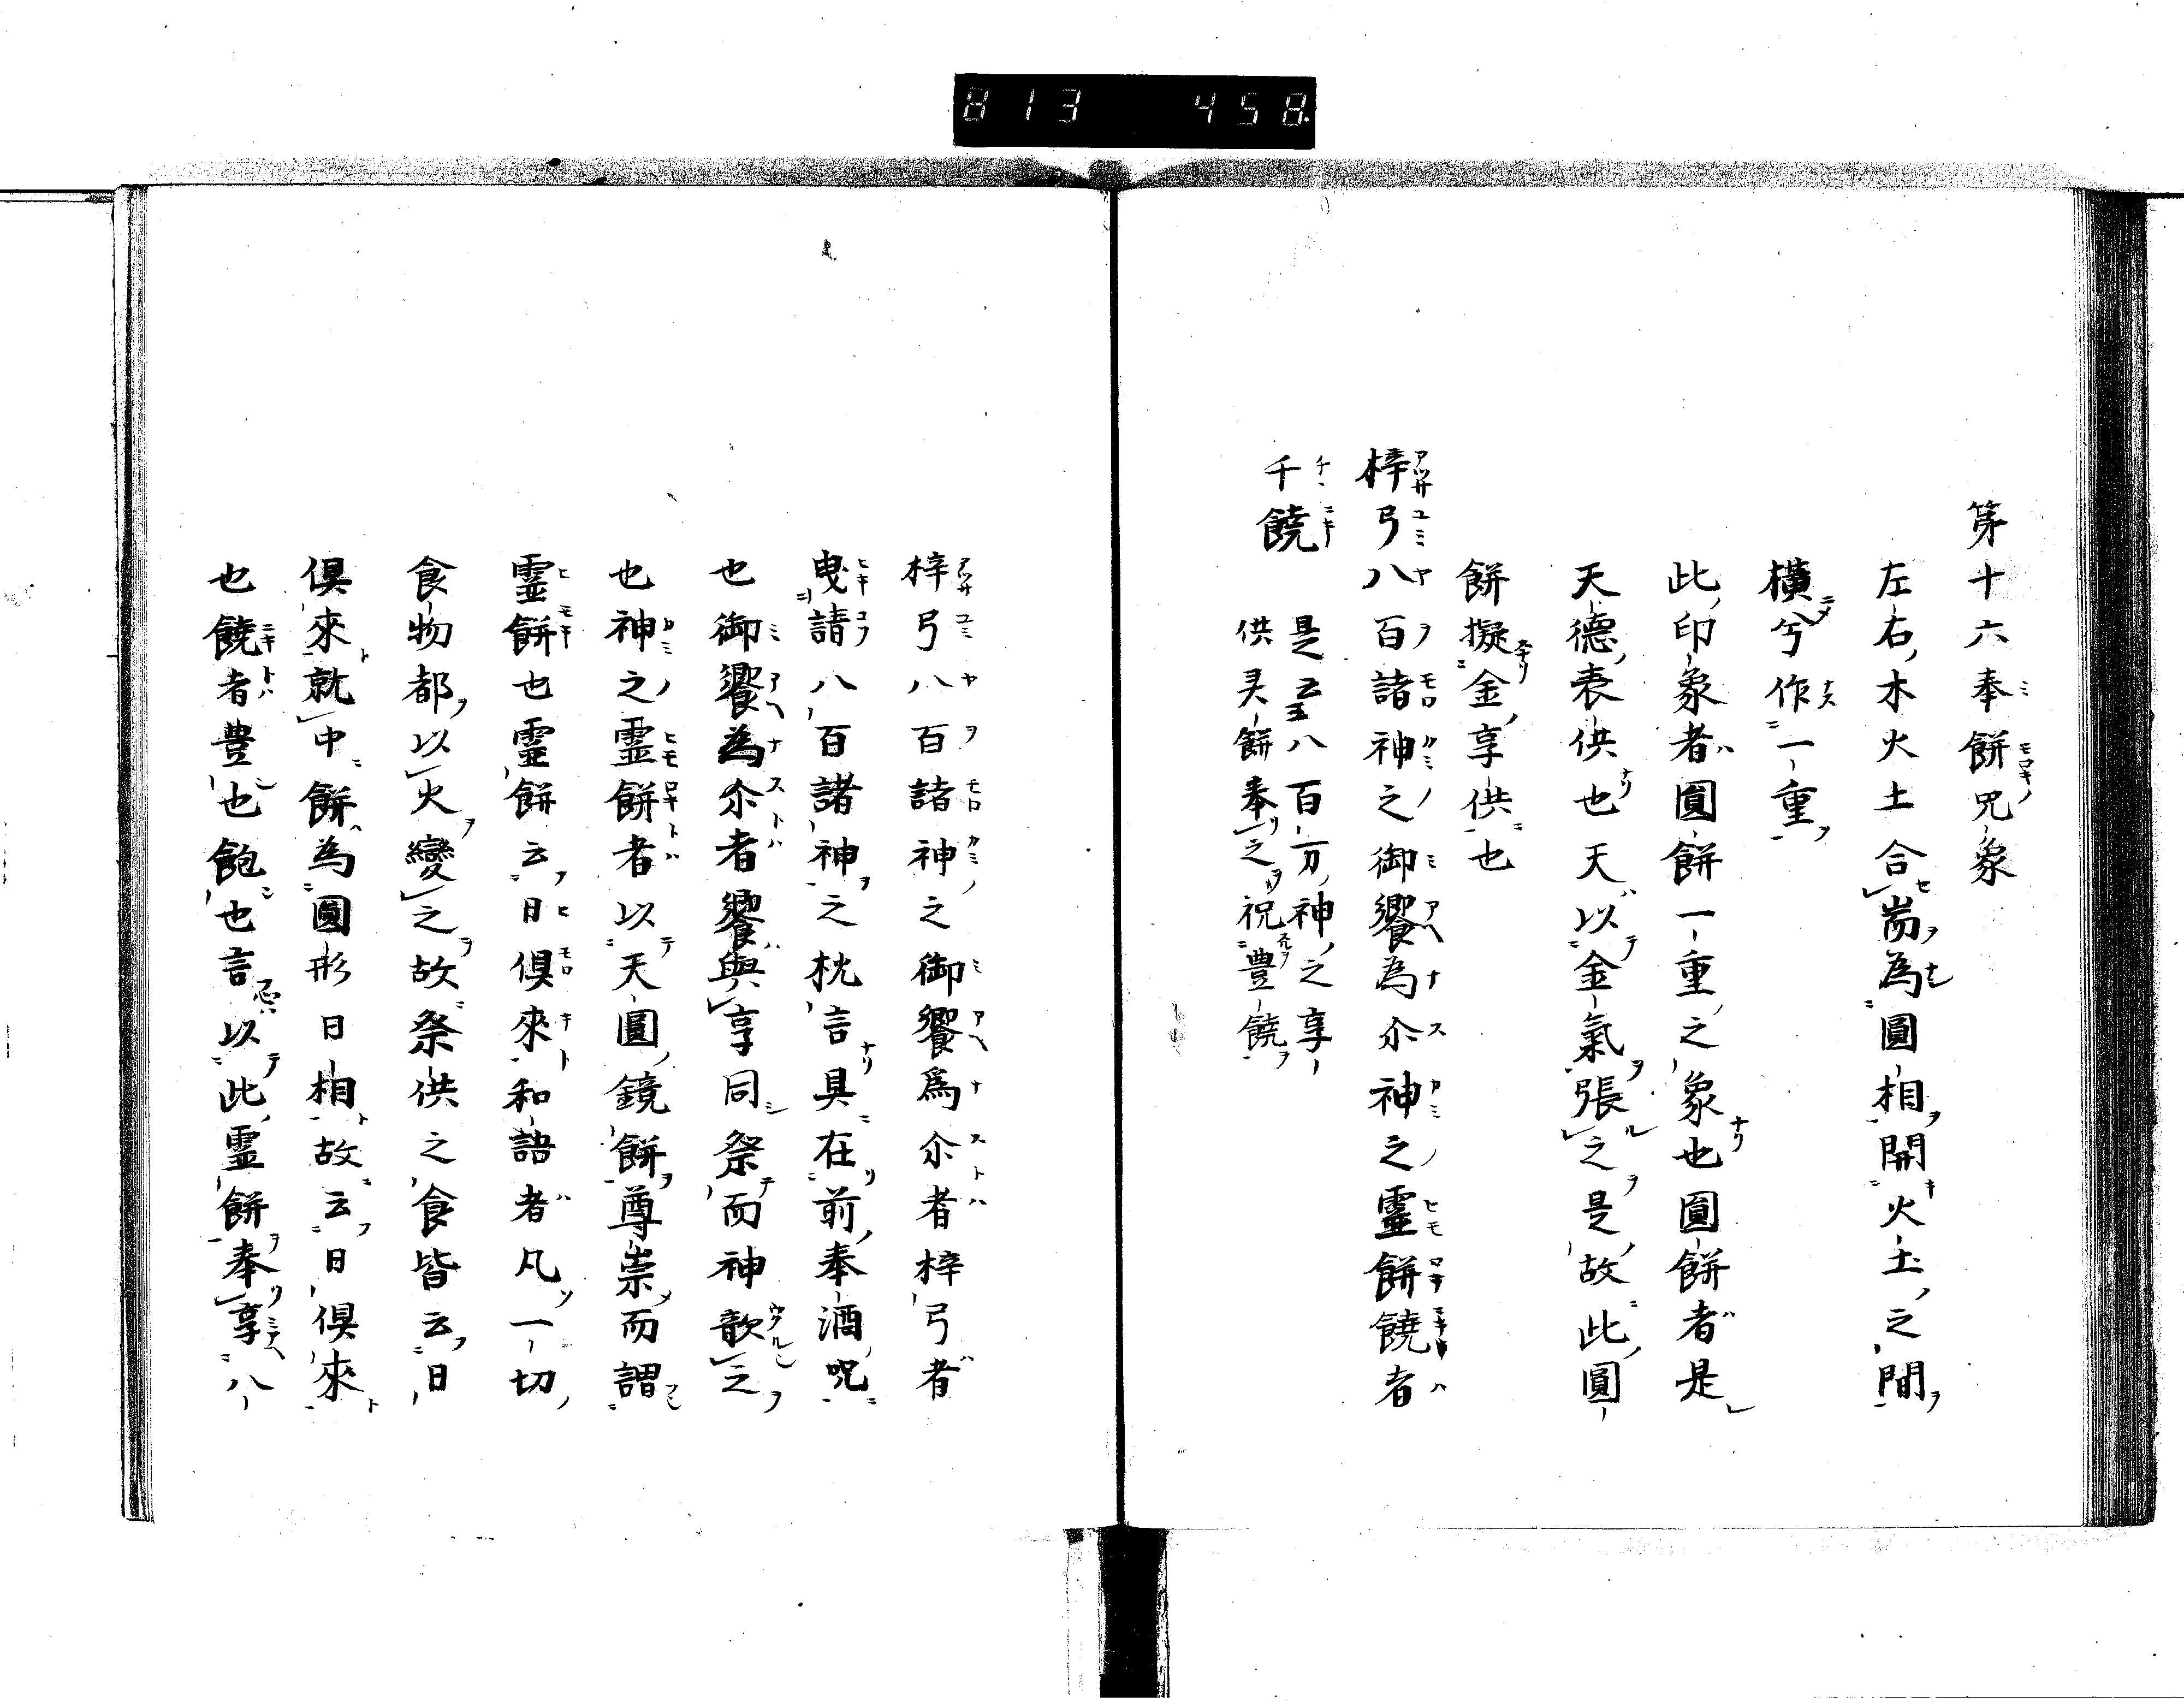 813 458
第十六奉餅咒象
左右木火土合耑為圓相開火土之間
橫兮作一重
此印象者圓餅一重之象也圓餅者是
天德表供也天以金氣張之是故此圓
餅擬金享供也
梓弓八百諸神之御饗為尒神之靈餅饒者
千饒
是云八百万神之享
供灵餅奉之祝豊饒
梓弓八百諸神之御饗爲尒者梓弓者
曳請八百諸神之枕言具在前奉酒呪
也御饗為尒者饗與享同祭而神歆之
也神之靈餅者以天圓鏡餅尊崇而謂
靈餅也靈餅云日俱來和語者凡一切
食物都以火變之故祭供之食皆云日
俱來就中餅為圓形日相故云日俱來
也饒者豊也飽也言以此靈餅奉享八